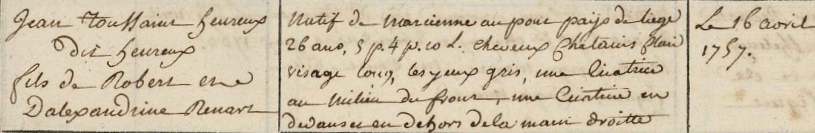 Jean Toussaint heureux
dit heureux
fils de Robert et de
Dalexandrine Renart
Natif de Marcienne au pont païs de liege
26 ans, 5 p. 4 p. 10 L. cheveux Chatains
visage long, les yeux gris, une Cicatrice
au Milieu du front, une Cicatrice en
dedans et en dehors de la main droitte
Le 16 avril
1757.